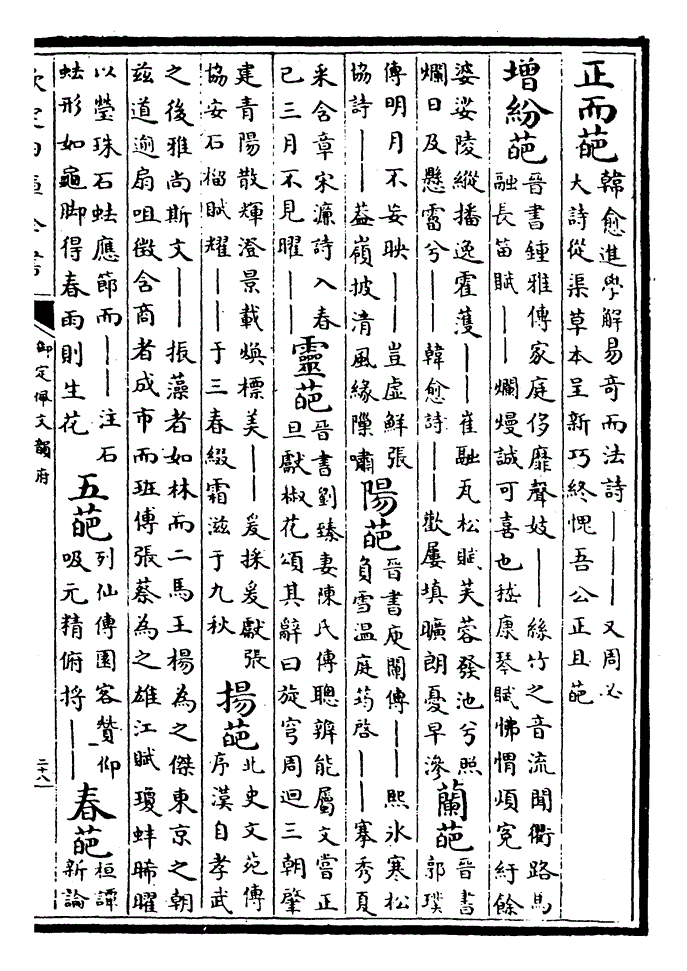 正而葩
韓愈進學解易奇而法詩｜｜｜又周必
大詩從渠草本呈新巧終愧吾公正且葩
增紛葩
晉書鍾雅傳家庭侈靡聲妓｜｜絲竹之音流聞衢路馬
融長笛賦｜｜爛熳誠可喜也嵇康琴賦怫愲煩寃紆餘
婆娑陵縱播逸霍濩｜｜崔融瓦松賦芙蓉發池兮照
爛日及懸霤兮｜｜韓愈詩｜｜歡屢填曠朗憂早滲
蘭葩
晉書
郭璞
傳明月不妄映｜｜豈虛鮮張
協詩｜｜益嶺披清風緣隟嘯
陽葩
晉書庾闡傳｜｜熙冰寒松
負雪溫庭筠啓｜｜搴秀夏
采含章宋濂詩入春
已三月不見曜｜｜
靈葩
晉書劉臻妻陳氏傳聰辨能屬文嘗正
旦獻椒花頌其辭曰旋穹周迴三朝肇
建青陽散輝澄景載煥標美｜｜爰採爰獻張
協安石榴賦耀｜｜于三春綴霜滋于九秋
揚葩
北史文苑傳
序漢自孝武
之後雅尚斯文｜｜振藻者如林而二馬王楊為之傑東京之朝
茲道逾扇咀徵含商者成市而班傅張蔡為之雄江賦瓊蚌晞曜
以瑩珠石蛣應節而｜｜注石
蛣形如龜脚得春雨則生花
五葩
列仙傳園客贊仰
吸元精俯捋｜｜
春葩
桓譚
新論
欽定四庫全書
御定佩文韻府
二十八